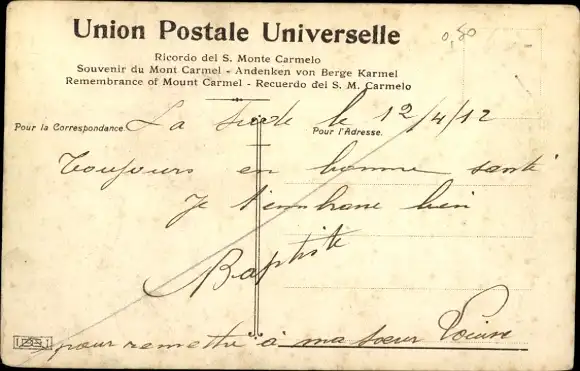 Union Postale Universelle
0,50
Ricordo del S. Monte Carmelo
Souvenir du Mont Carmel - Andenken von Berge Karmel
Remembrance of Mount Carmel - Recuerdo del S. M. Carmelo
Pour la Correspondance.
Pour l'Adresse.
La le 12/4/12
Toujours en bonne santé
Je t'embrasse bien
Baptiste
pour remettre à ma soeur